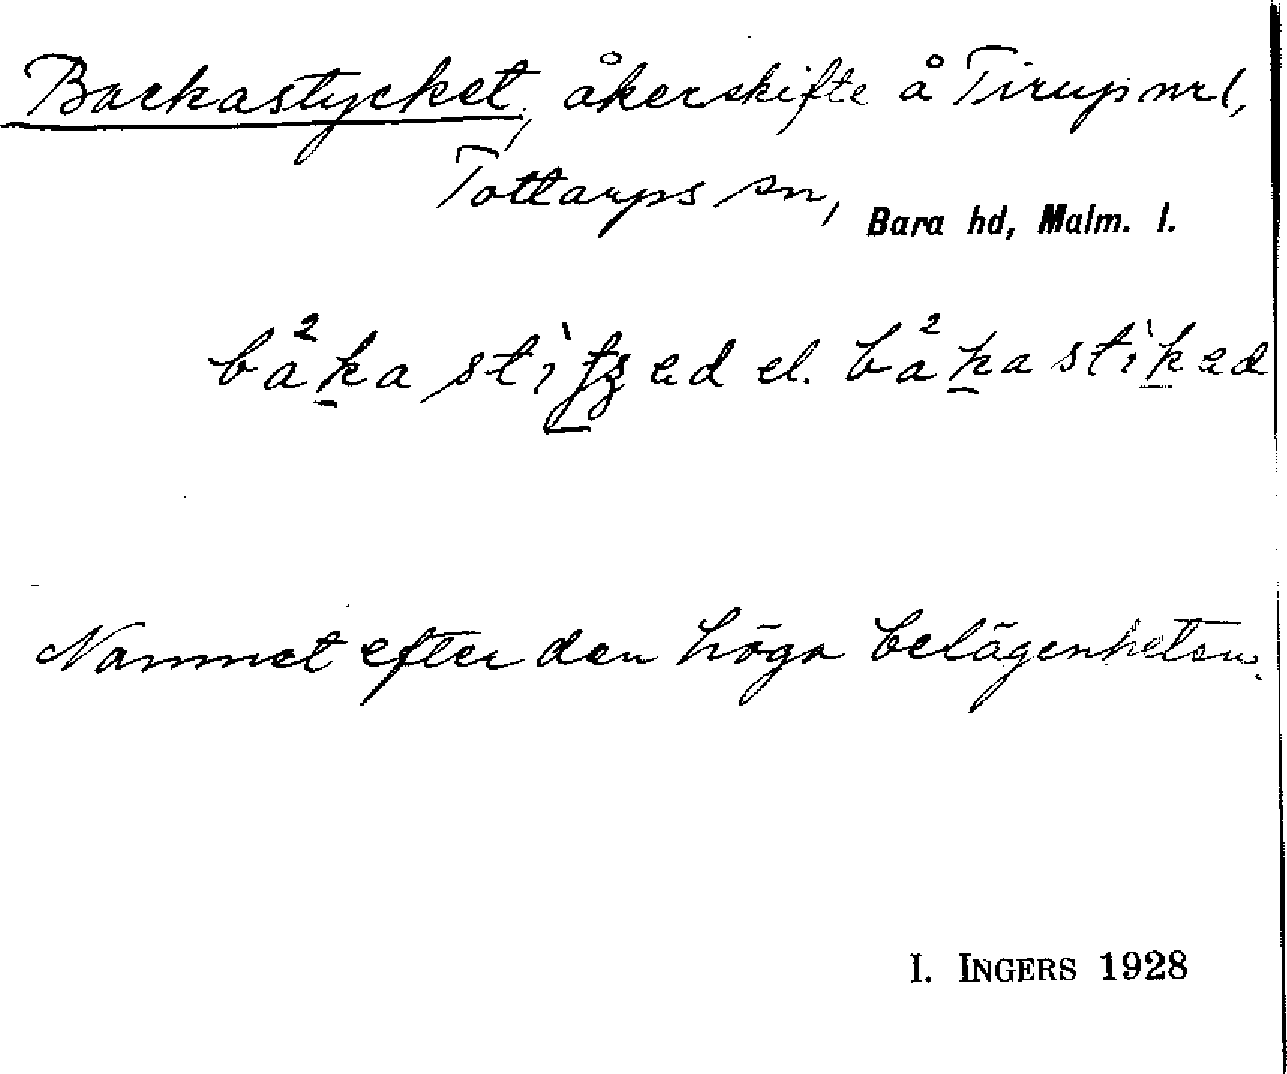 Backastycket, åkerskifte å Tirup nr 1,
Tottarps sn, Bara hd, Malm. l.
bå²ka stìtʒed el. bå²ka stìked
Namnet efter den höga belägenheten.
I. INGERS 1928